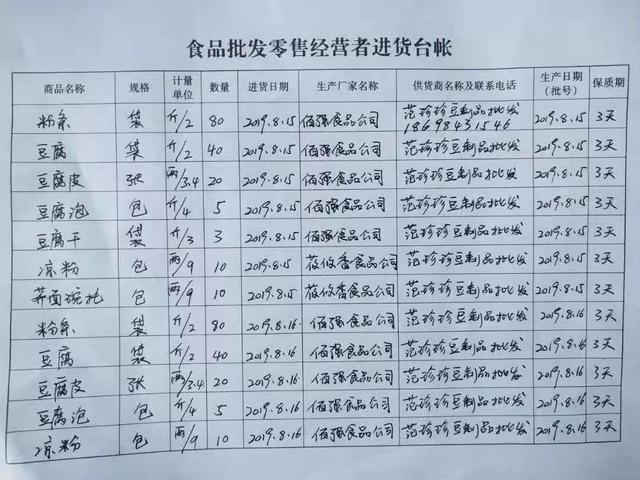 食品批发零售经营者进货台帐
商品名称 规格 计量单位 数量 进货日期 生产厂家名称 供货商名称及联系电话 生产日期(批号) 保质期
粉条 袋 斤/2 80 2019.8.15 佰强食品公司 范珍珍豆制品批发 18698431546 2019.8.15 3天
豆腐 袋 斤/2 40 2019.8.15 佰强食品公司 范珍珍豆制品批发 2019.8.15 3天
豆腐皮 张 两/3.4 20 2019.8.15 佰强食品公司 范珍珍豆制品批发 2019.8.15 3天
豆腐泡 包 斤/4 5 2019.8.15 佰强食品公司 范珍珍豆制品批发 2019.8.15 3天
豆腐干 袋 斤/3 3 2019.8.15 佰强食品公司 范珍珍豆制品批发 2019.8.15 3天
凉粉 包 两/9 10 2019.8.15 食品公司 范珍珍豆制品批发 2019.8.15 3天
荞面碗托 包 两/9 10 2019.8.15 食品公司 范珍珍豆制品批发 2019.8.15 3天
粉条 袋 斤/2 80 2019.8.16 佰强食品公司 范珍珍豆制品批发 2019.8.16 3天
豆腐 袋 斤/2 40 2019.8.16 佰强食品公司 范珍珍豆制品批发 2019.8.16 3天
豆腐皮 张 两/3.4 20 2019.8.16 佰强食品公司 范珍珍豆制品批发 2019.8.16 3天
豆腐泡 包 斤/4 5 2019.8.16 佰强食品公司 范珍珍豆制品批发 2019.8.16 3天
凉粉 包 两/9 10 2019.8.16 佰强食品公司 范珍珍豆制品批发 2019.8.16 3天